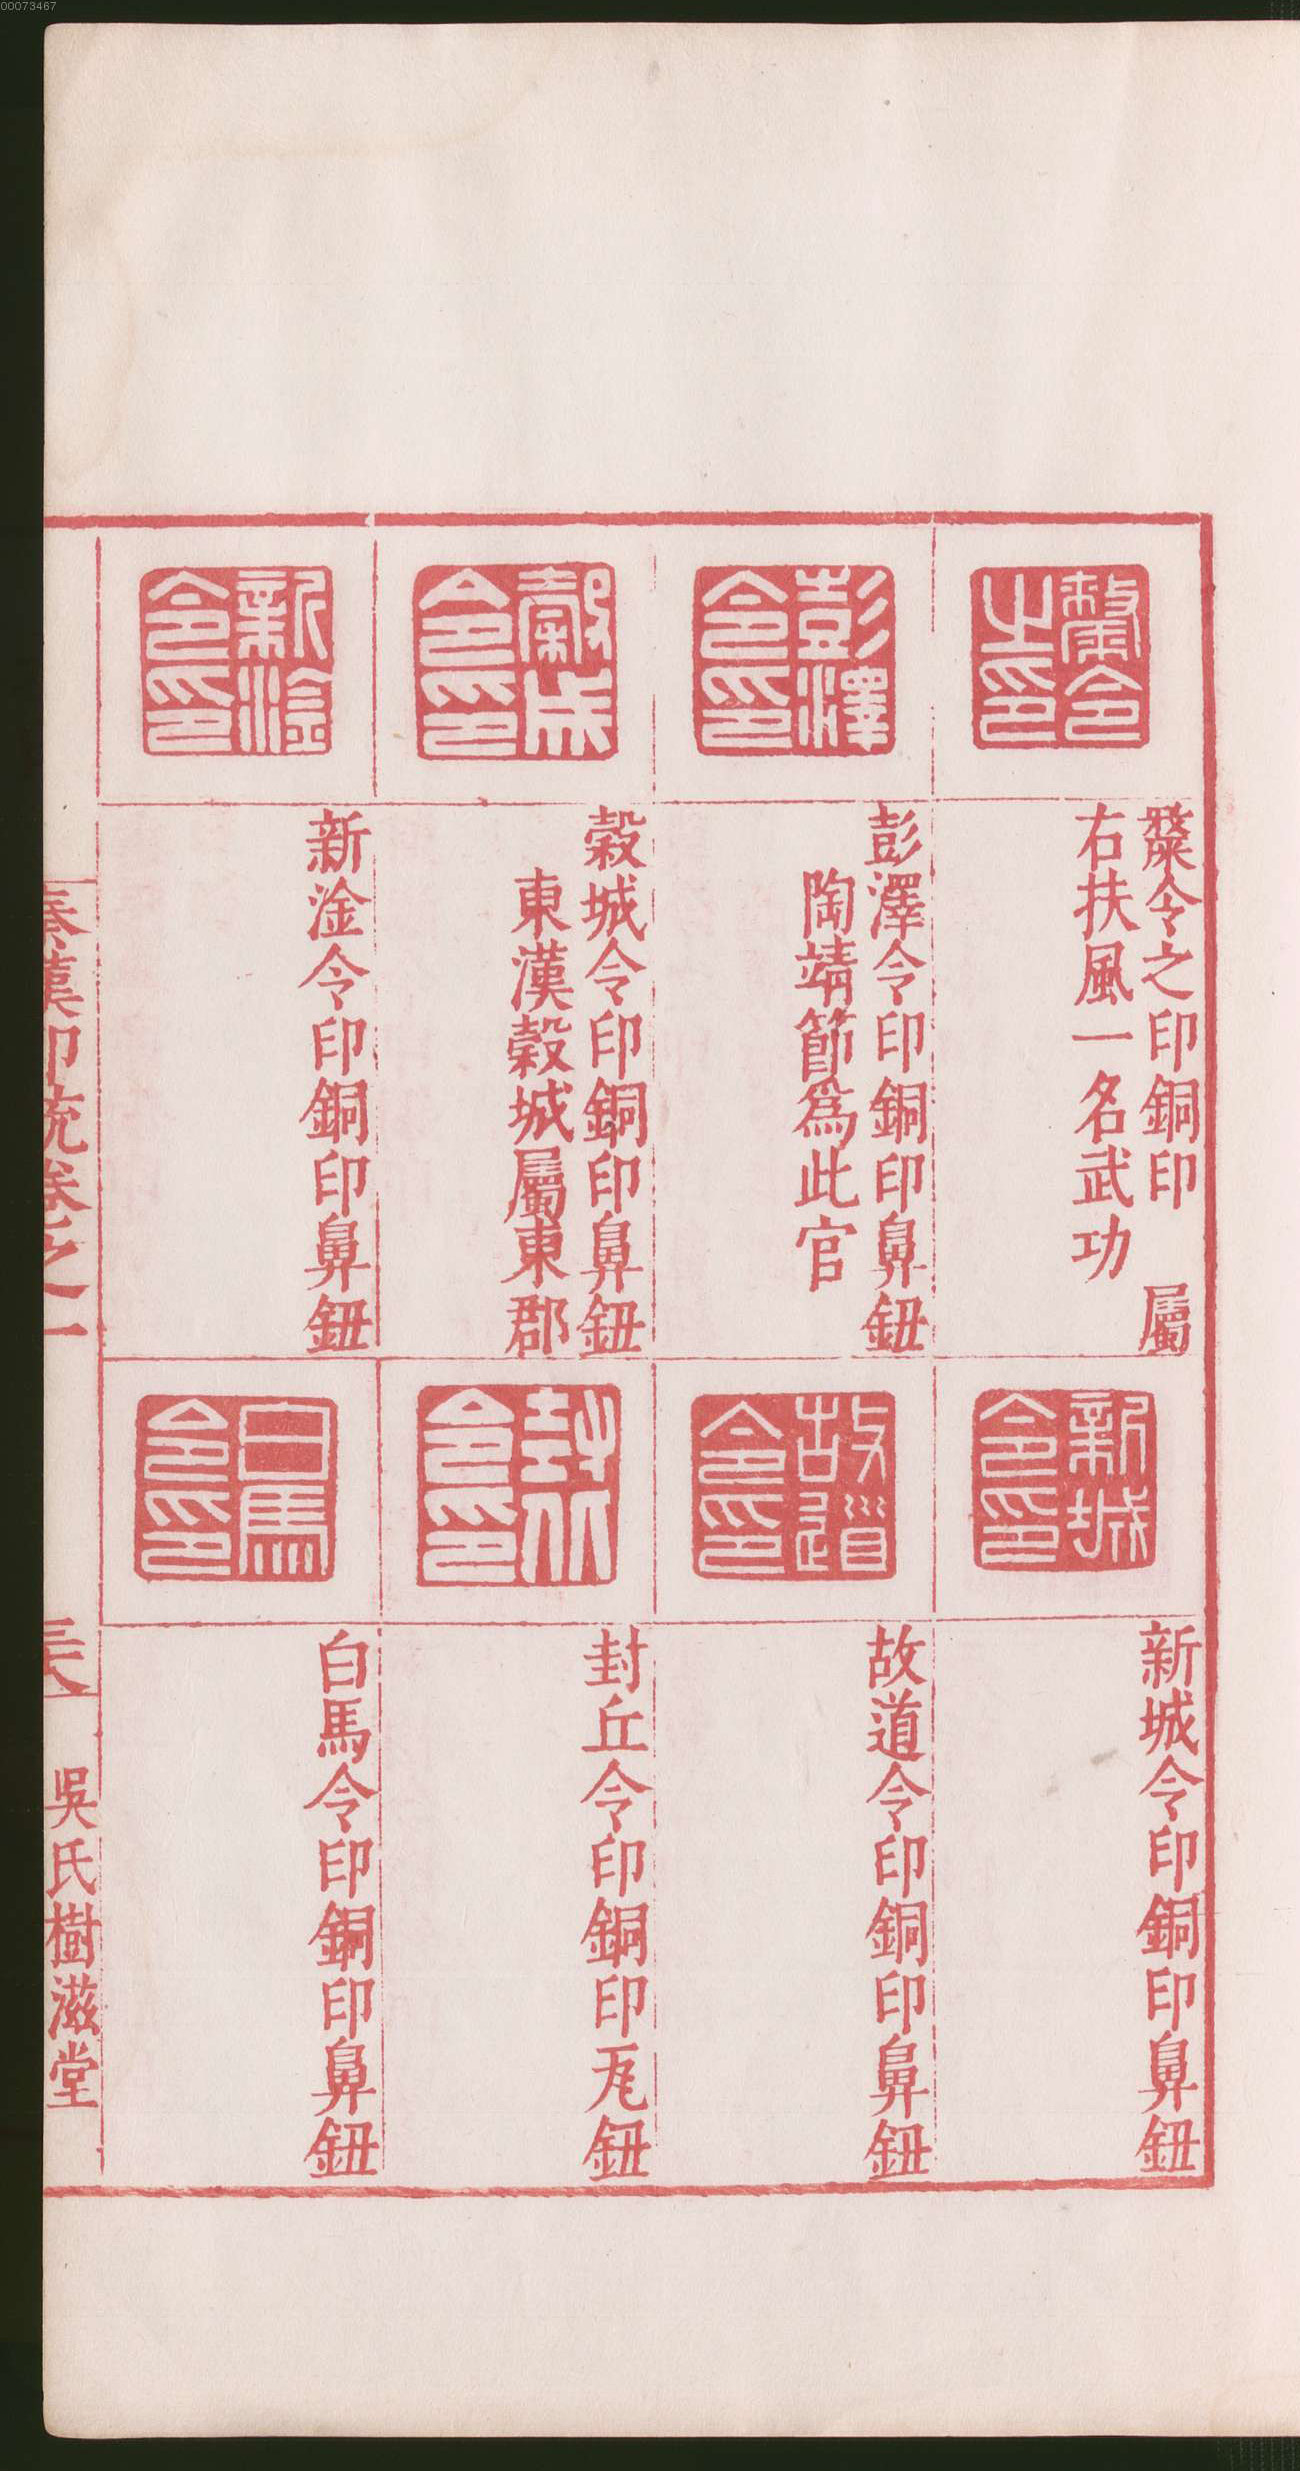 00073467
漦令之印銅印 屬
右扶風一名武功
彭澤令印銅印鼻鈕
陶靖節爲此官
穀城令印銅印鼻鈕
東漢穀城屬東郡
新淦令印銅印鼻鈕
新城令印
新城令印銅印鼻鈕
故道令印
故道令印銅印鼻鈕
封丘令印銅印瓦鈕
白馬令印
白馬令印銅印鼻鈕
彭澤令印
穀成令印
新淦令印
秦漢印統卷之一
吳氏樹滋堂